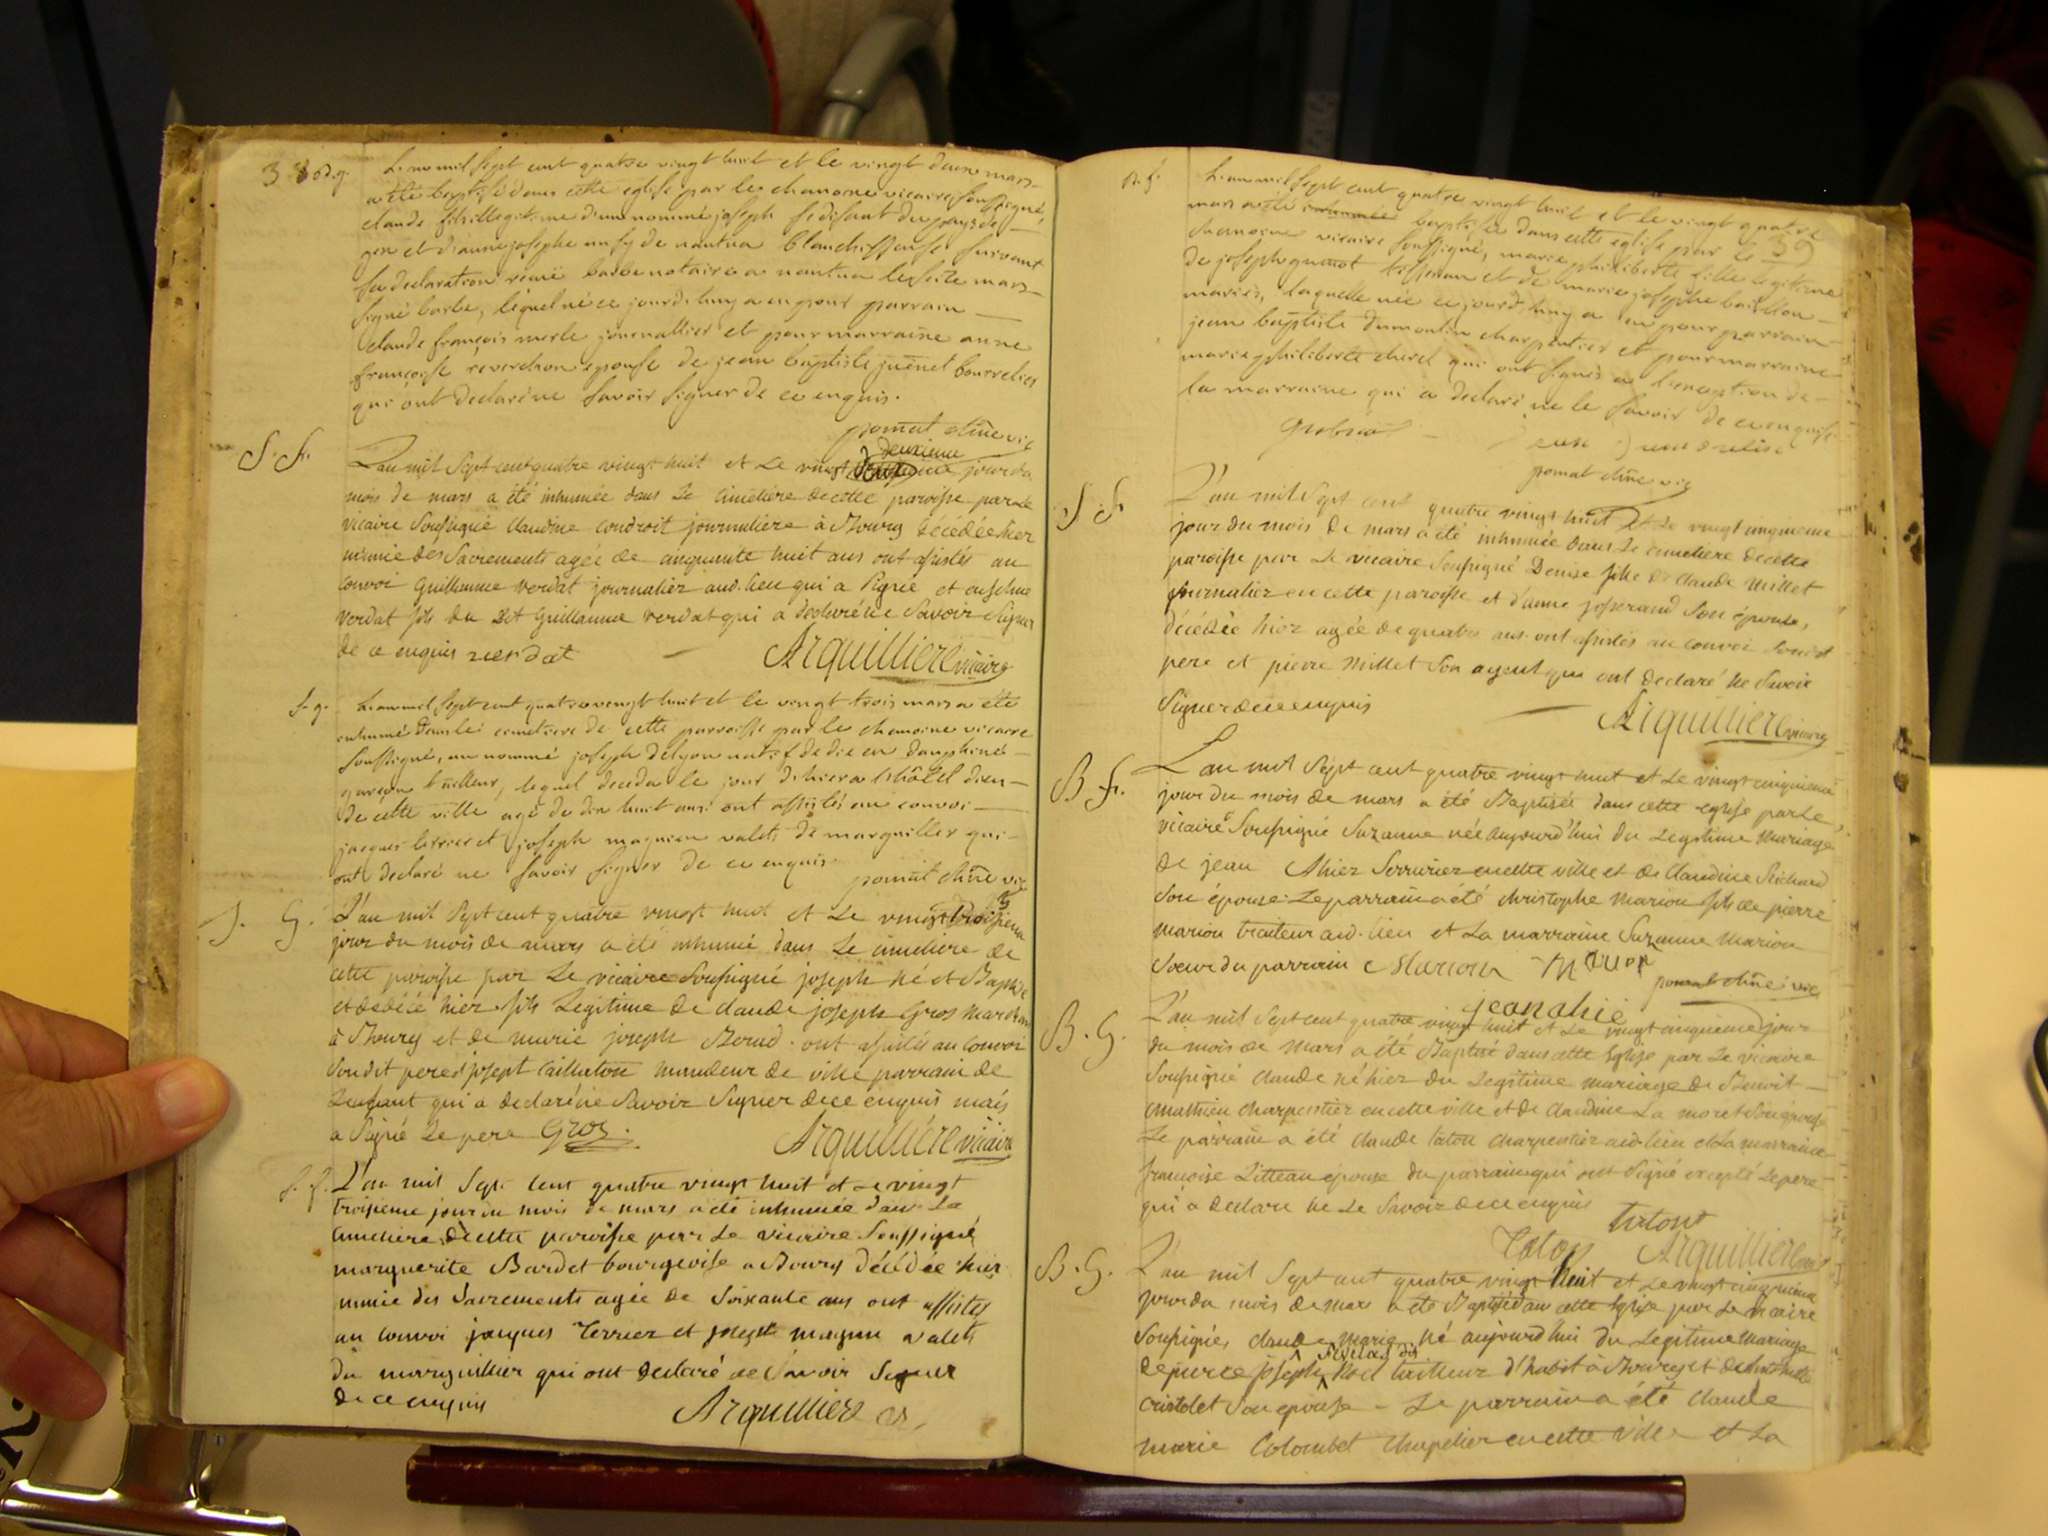 38 b.g. L'an mil sept cent quatre vingt huit et le vingt deux mars
a été baptisé dans cette eglise par le chanoine vicaire soussigné,
claude fils illegitime d'un nommé joseph se disant du pays de
gex et d'anne josephe de nantua blanchisseuse suivant
sa declaration barbe notaire a nantua le mars
signé barbe, lequel né ce jourd'huy a eu pour parrain
claude françois merle journallier et pour marraine anne
françoise reverchon epouse de jean baptiste juenet bourrelier
qui ont declaré ne savoir signer de ce enquis.
pomat chne vic
deuxieme
S. f. L'an mil sept cent quatre vingt huit et Le vingt jour du
mois de mars a été inhumée dans Le cimetière de cette paroisse par Le
vicaire soussigné claudine coudroit journaliere à Bourg décédée hier
munie des sacrements agée de cinquante huit ans ont assistés au
convoi guillaume verdat journalier aud. lieu qui a signé et anselme
verdat fils du dit guillaume verdat qui a declaré ne savoir signer
de ce enquis verdat Arquilliere vicaire
S. g. L'an mil sept cent quatre vingt huit et le vingt trois mars a été
inhumé dans le cimetiere de cette parroisse par le chanoine vicaire
soussigné, un nommé joseph delyon natif de die en dauphiné
garçon tailleur, lequel deceda le jour d'hier a l'hôtel dieu
de cette ville agé de dix huit ans. ont assistés au convoi
jacques terrier et joseph magnien valets de marguillier qui
ont declaré ne savoir signer de ce enquis. pomat chne vic
S. G. L'an mil sept cent quatre vingt huit et Le vingt troisieme
jour du mois de mars a été inhumé dans Le cimetiere de
cette paroisse par Le vicaire soussigné joseph né et Baptisé
et décédé hier fils Legitime de claude joseph Gros marchand
à Bourg et de marie joseph ont assistés au convoi
son dit pere et josept Caillaton mandeur de ville parrain de
L'enfant qui a declaré ne savoir signer de ce enquis mais
a signé Le pere Gros. Arquilliere vicaire
S. f. L'an mil sept cent quatre vingt huit et Le vingt
troisieme jour du mois de mars a été inhumée dans Le
cimetiere de cette paroisse par Le vicaire soussigné
marguerite Bardet bourgeoise a Bourg décédée hier
munie des sacrements agée de soixante ans ont assistes
au convoi jacques Terrier et joseph magnin valets
du marguillier qui ont declaré ne savoir signer
de ce enquis Arquilliere
39
B. f. L'an mil sept cent quatre vingt huit et le vingt quatre
mars a été baptisée dans cette eglise par le
chanoine vicaire soussigné, marie philiberte fille legitime
de joseph tisseran et de marie josephe
mariés, laquelle née ce jourd'huy a eu pour parrain
jean baptiste dumoulin charpentier et pour marraine
marie philiberte qui ont signés a l'exception de
la marraine qui a declaré ne le savoir de ce enquise
pomat chne vic
S f. L'an mil sept cent quatre vingt huit et Le vingt cinquieme
jour du mois de mars a été inhumée dans Le cimetiere de cette
paroisse par Le vicaire soussigné Denise fille de claude Millet
journalier en cette paroisse et d'anne josserand son épouse,
décédée hier agée de quatre ans. ont assistés au convoi son dit
pere et pierre Millet son ayeul qui ont declaré ne savoir
signer de ce enquis Arquilliere vicaire
B. f. L'an mil sept cent quatre vingt huit et Le vingt cinquieme
jour du mois de mars a été Baptisée dans cette eglise par Le
vicaire soussigné suzanne née aujourd'hui du Legitime mariage
de jean Ahiez serrurier en cette ville et de claudine Richard
son épouse. Le parrain a été christophe Marion fils de pierre
marion traiteur aud. lieu et La marraine suzanne Marion
soeur du parrain Marion
pomat chne vic
jean ahie
B. G. L'an mil sept cent quatre vingt huit et Le vingt cinquieme jour
du mois de mars a été Baptisé dans cette Eglise par Le vicaire
soussigné claude né hier du Legitime mariage de Benoit
Mathieu charpentier en cette ville et de claudine La moret son épouse
Le parrain a été claude taton charpentier aud. lieu et La marraine
françoise Litteau épouse du parrain qui ont signé excepté Le pere
qui a declaré ne Le savoir de ce enquis
Taton Arquilliere
B. G. L'an mil sept cent quatre vingt huit et Le vingt cinquieme
jour du mois de mars a été Baptisé dans cette Eglise par Le vicaire
soussigné, claude marie né aujourd'hui du Legitime mariage
de pierce joseph Noel tailleur d'habit à Bourg et de
cristolet son epouse - Le parrain a été claude
marie Colombet chapelier en cette ville et La